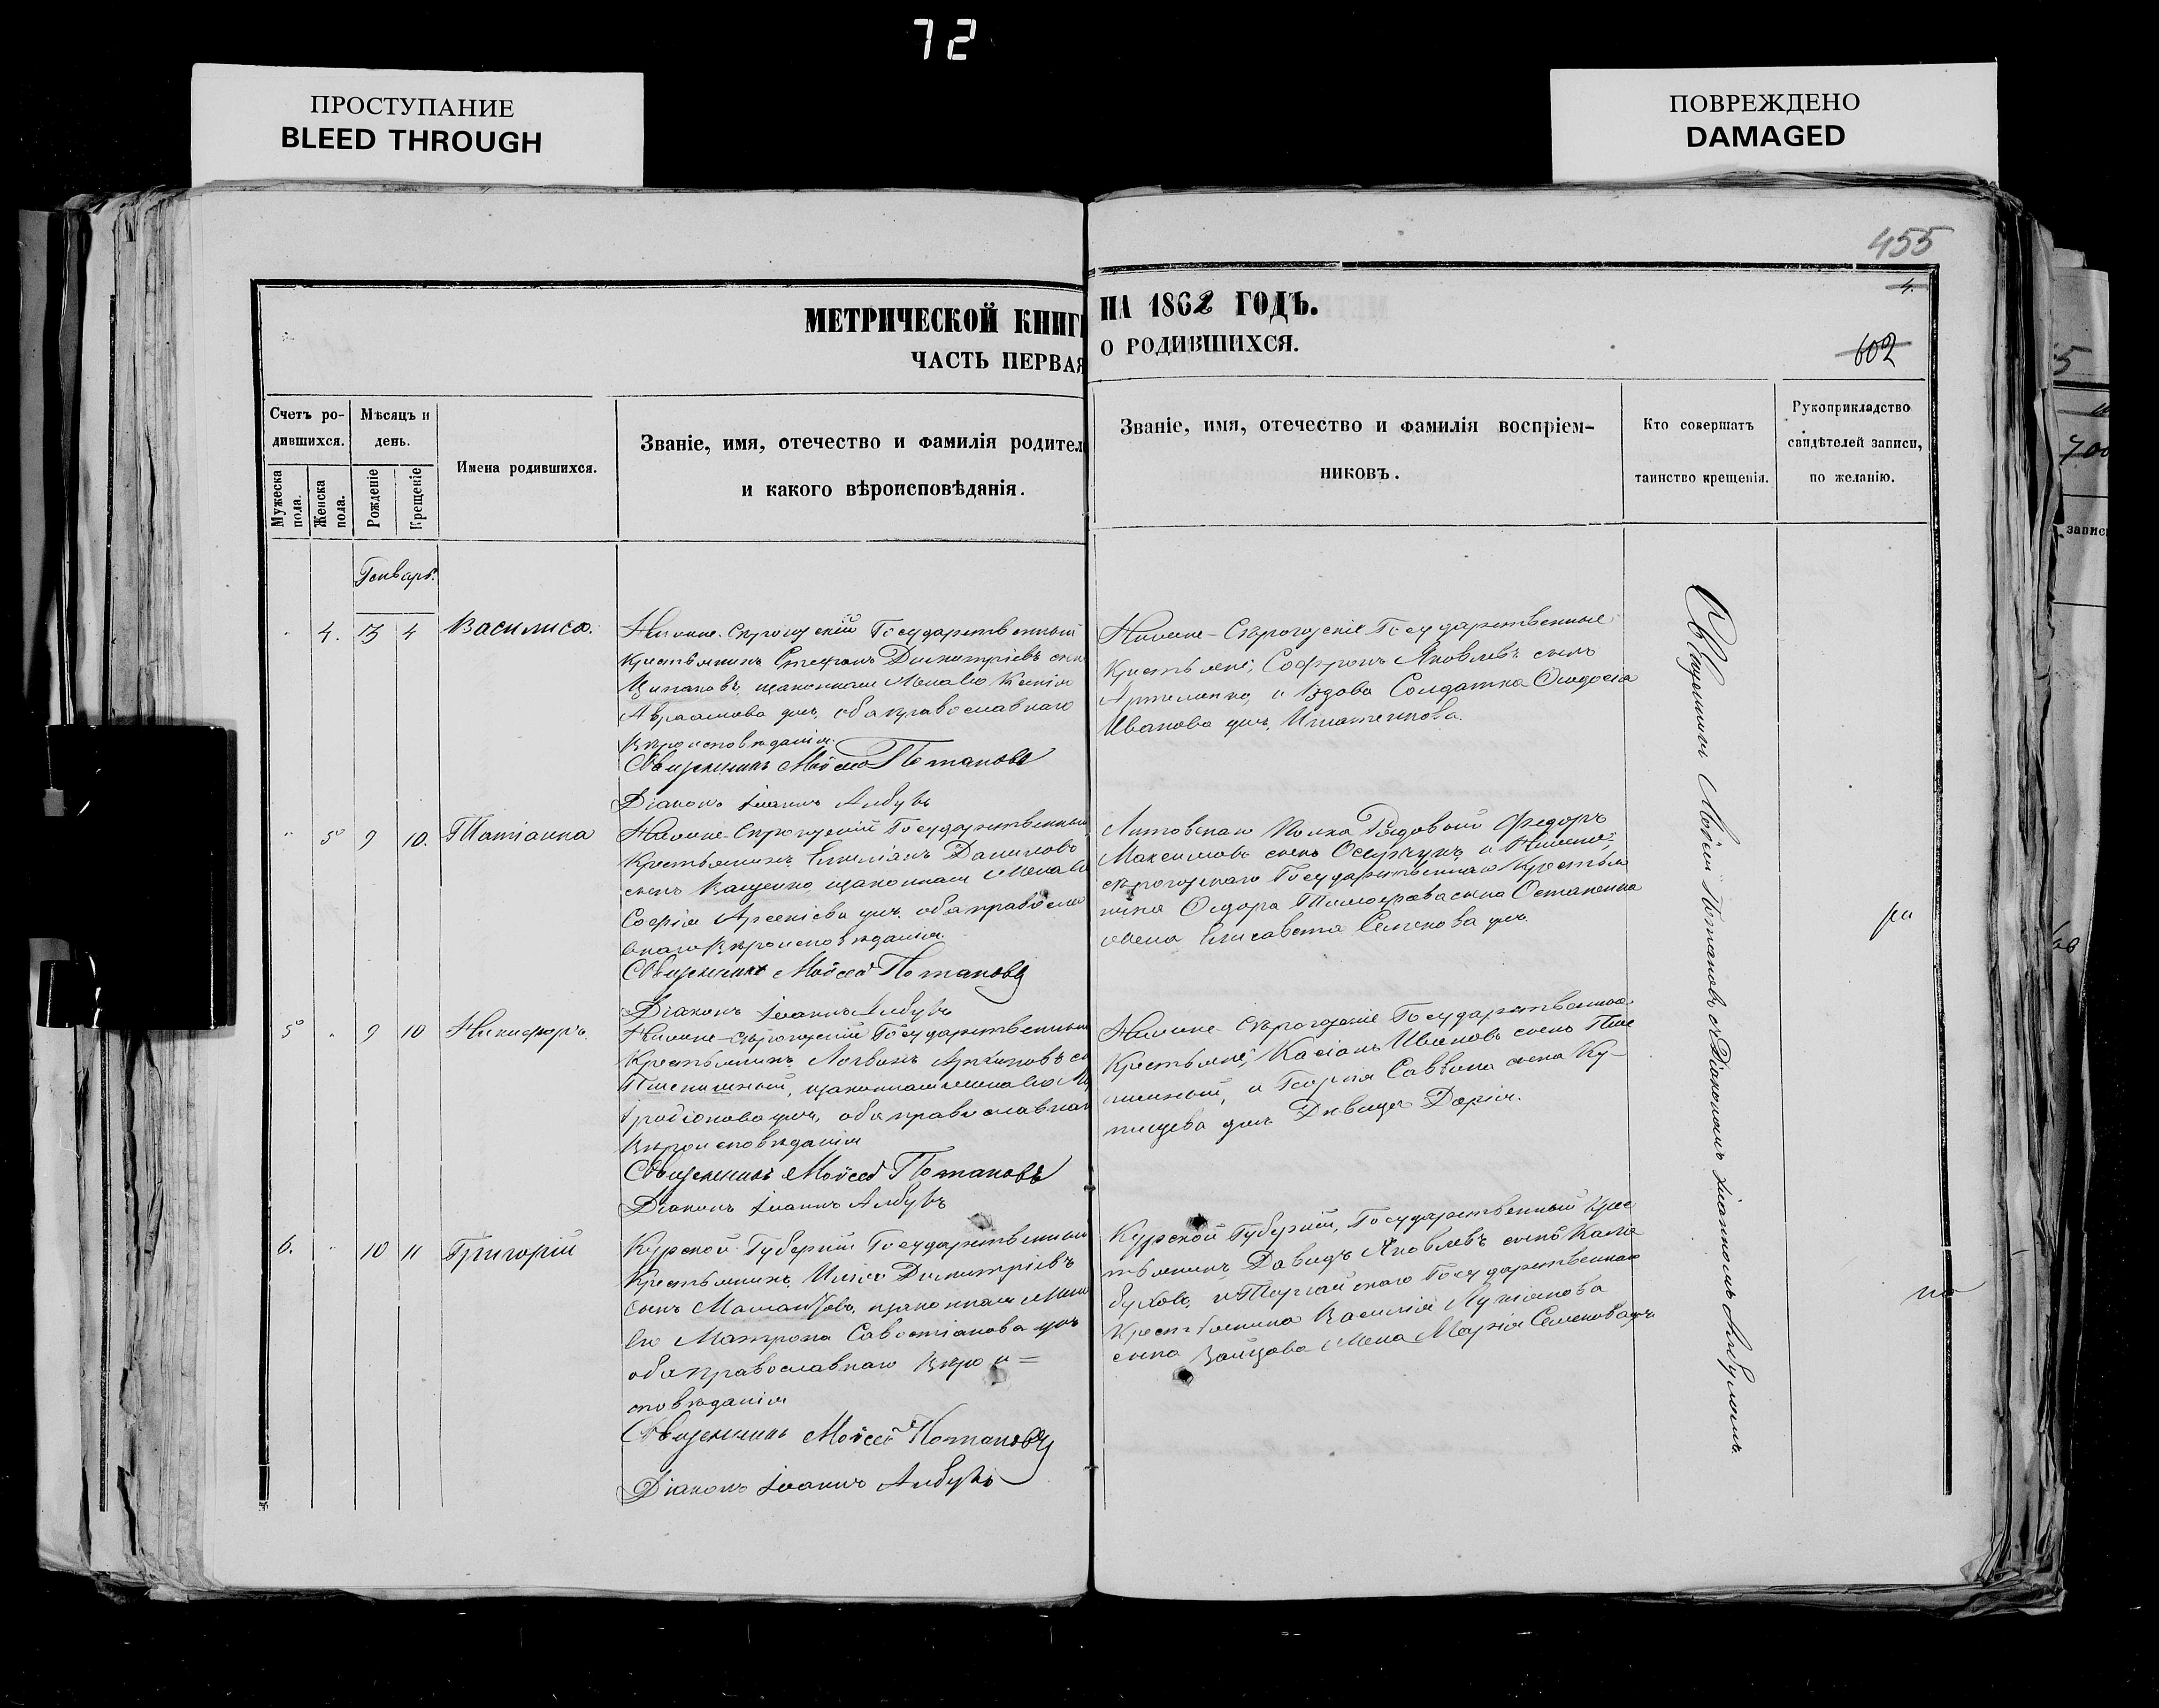 72
ПРОСТУПАНИЕ
BLEED THROUGH
ПОВРЕЖДЕНО
DAMAGED
455
4.
МЕТРИЧЕСКОЙ КНИГИ НА 1862 ГОДЪ.
ЧАСТЬ ПЕРВАЯ О РОДИВШИХСЯ.
602
Счетъ ро-
дившихся.
Мужеска пола.
Женска пола.
Мѣсяцъ и
день.
Рожденіе
Крещеніе
Имена родившихся.
Званіе, имя, отечество и фамилія родител
и какого вѣроисповѣданія.
Званіе, имя, отечество и фамилія воспріем-
никовъ.
Кто совершатъ
таинство крещенія.
Рукоприкладство
свидѣтелей записи,
по желанію.
Генварь.
4. 3 4 Василиса.
Нижне-Сѣрогозскій Государственный
Крестьянинъ Стефанъ Димитріевъ сын
законная жена его Ксенія
Авраамова дочь, оба православнаго
Вѣроисповѣданія.
Священникъ Моѵсей Потаповъ
Діаконъ Іоаннъ Албулъ
Нижне-Сѣрогозскіе Государственные
Крестьяне, Софронъ Яковлевъ сынъ
и Вдова Солдатка Ѳеодосія
Иванова дочь Игнатенкова.
5 9 10. Татіанна
Нижне-Сѣрогозскій Государственный
Крестьянинъ Емиліанъ Даниловъ
сынъ Ващенко законная жена его
Софія Арсеніева дочь, оба православ
внаго Вѣроисповѣданія.
Священникъ Моѵсей Потаповъ
Діаконъ Іоаннъ Албулъ
Литовскаго Полка Рядовый Федоръ
Максимовъ сынъ и Нижне-
сѣрогозскаго Государственнаго Крестья
нина Ѳедора Тимофеева сына Остапенка
жена Елисавета Семенова дочь.
5 9 10 Никифоръ.
Нижне-Сѣрогозскій Государственный
Крестьянинъ Логвинъ Архиповъ с
Пшеничный, законная жена его М
Иродіонова дочь, оба православнаг
Вѣроисповѣданія
Священникъ Моѵсей Потаповъ
Діаконъ Іоаннъ Албулъ
Нижне-Сѣрогозскіе Государственные
Крестьяне, Касіанъ Ивановъ сынъ Пше
ничный, и Георгія Саввина сына Ку-
пищева дочь Дѣвица Дарія.
6. 10 11 Григорій
Курской Губерніи Государственный
Крестьянинъ Димитріевъ
сынъ законная жена
Его Матрона Савостіанова дочь
оба православнаго Вѣрои=
сповѣданія
Священникъ Моѵсей Потаповъ
Діаконъ Іоаннъ Албулъ
Курской Губерніи, Государственный Крес
тьянинъ Давидъ Яковлевъ сынъ
и Государственнаго
Крестьянина Василія Лукіанова
сына Зайцова жена Марія Семенова дочь
Священникъ Моѵсей Потаповъ съ Діакономъ Іоанномъ Албуломъ.